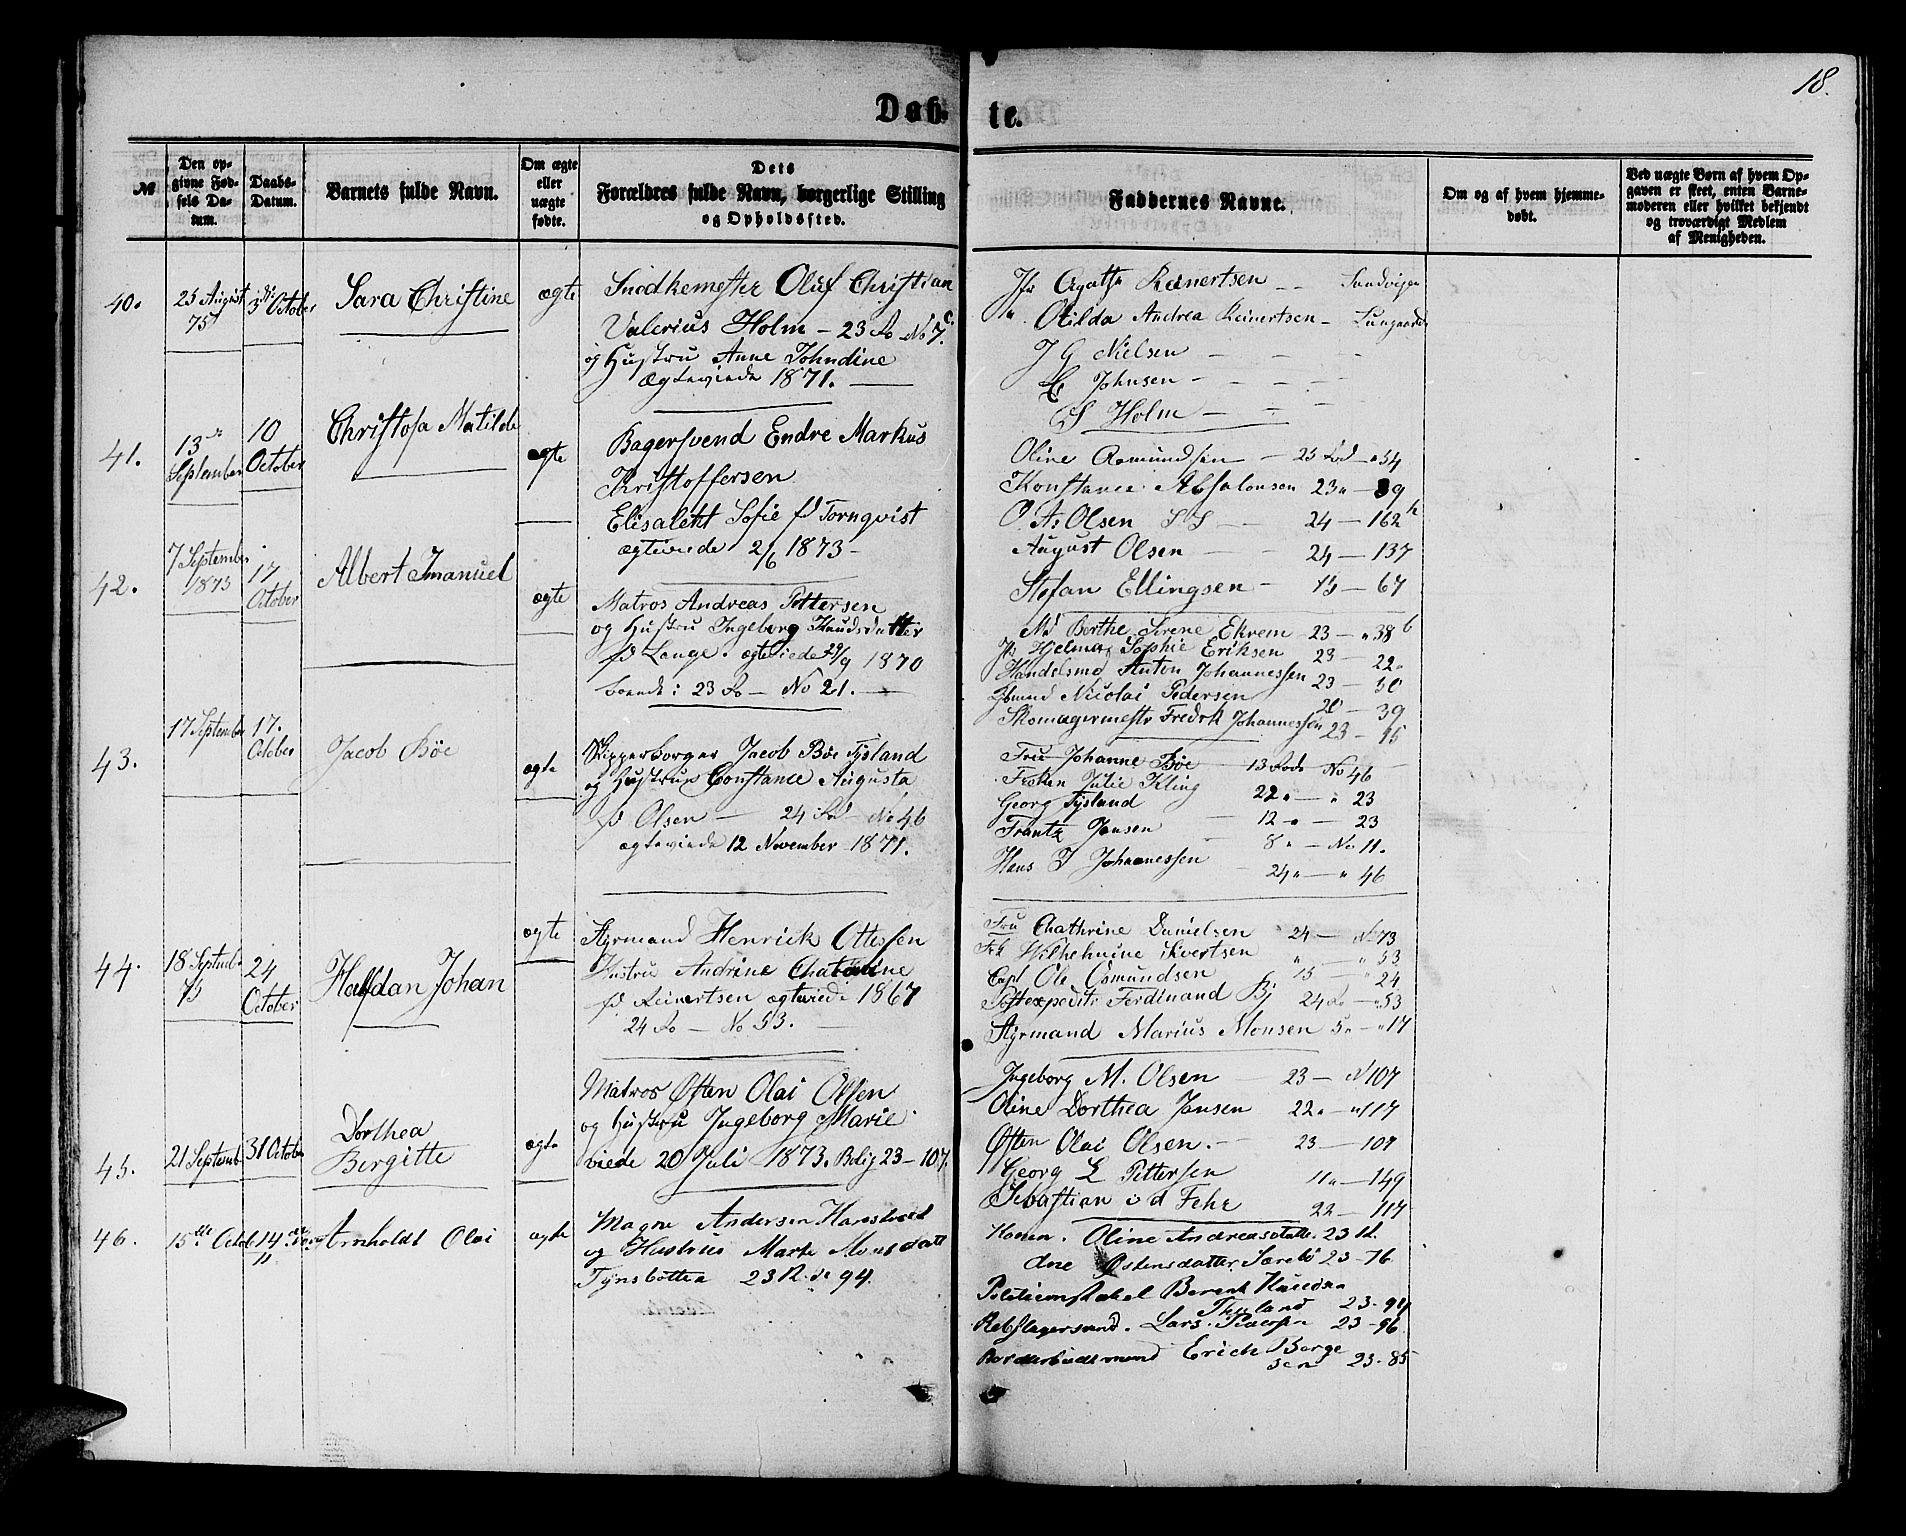 18.
Døb-
te.
№
Den op-
givne Fød-
sels Da-
tum.
Daabs-
Datum.
Barnets fulde Navn.
Om ægte
eller
uægte
fødte.
Dets
Forældres fulde Navn, borgerlige Stilling
og Opholdssted.
Faddernes Navne.
Om og af hvem hjemme-
døbt.
Ved uægte Børn af hvem Op-
gaven er skeet, enten Barne-
moderen eller hvilket bekjendt
og troværdigt Medlem
af Menigheden.
40.
25 August
75
3die October
Sara Christine
ægte
Snedkemester Oluf Christian
Valerius Holm – 23 Ro No 7 c.
og Hustru Anne Johndine
Ægteviede 1871.
Jfr Agathe Reinertsen – – Sandvigen
" Otilda Andrea Reinertsen – Lungaarden
J G Nielsen
C Johnsen
S Holm
41.
13de
September
10
October
Christofa Matilde
ægte
Bagersvend Endre Markus
Kristoffersen
Elisabeht Sofie fd Tornqvist
ægteviede 2/6 1873 –
Oline Asmundsen – 23 Rod – 54
Konstance Absalonsen 23 " – 39
O. As Olsen 24 – 162 h
August Olsen 24 – 137
Stefan Ellingsen – 15 – 67
42.
7 September
1875
17
October
Albert Imanuel
ægte
Matros Andreas Pettersen
og Hustru Ingeborg Knudsdatter
fd Lange. ægteviede 29/9 1870
boende i 23 Ro – No 21. –
Md Berthe Serene Ekrem – 23 – " 38 b
Jfr Helma Sophie Eriksen 23 – 22
Handelsmd Anton Johannessen 23 – 30
Nicolai Pedersen 20 – 39
Skomagermestr Fredrk Johannessen 23 – 15
43.
17 September
17.
October
Jacob Böe
ægte
Skipperborger Jacob Böe Tysland
og Hustrue Constance Augusta
fd Olsen – 24 Rd No 46
ægteviede 12 November 1871.
Fru Johanne Böe – 13 Rode No 46
Frøken Julie Kling 22 " – " 23
Georg Tysland 12 " – 23
Frantz Jansen 8 " – No 11.
Hans J Johannessen 24 " – " 46
44.
18 Septembe
75
24
October
Halfdan Johan
ægte
Styrmand Henrick Ottesen
Hustru Andrine Chatarine
fd Reinertsen ægteviede 1867
24 Ro – No 53. –
Fru Chathrine Danielsen 24 – No 73
Frk Wilhelmine Sivertsen " – " 53
Capt Ole Osmundsen 15 – " 24
Postexpeditr Ferdinand Bj 24 Ro – " 53
Styrmand Marius Monsen 5 " – " 17
45.
21 Septemb
31 October
Dorthea
Bergitte
ægte
Matros Østen Olai Olsen
og Hustru Ingeborg Marie
viede 20 Juli 1873. Bolig 23 – 107.
Ingeborg M. Olsen – 23 – N 107
Oline Dorthea Jansen 22 " – " 117
Østen Olai Olsen. – 23 – 107
Georg L Pettersen 11 " – 149
Sebastian v d Fehr 22 – 117
46.
15de Octob
14 de
Arnholdt Olai
ægte
Magne Andersen
og Hustrue Marte Monsdatt
Tynsbottea 23 R. de 94.
Konen. Oline Andreasdatte. 23 R.
dne Østensdatter Sørebö 23 – 76
Berent Knudsen
Thuland 23 – 94
Rebslagersvend. Lars. Pedersen 23 – 96
Erich Berge
sen 23 – 85